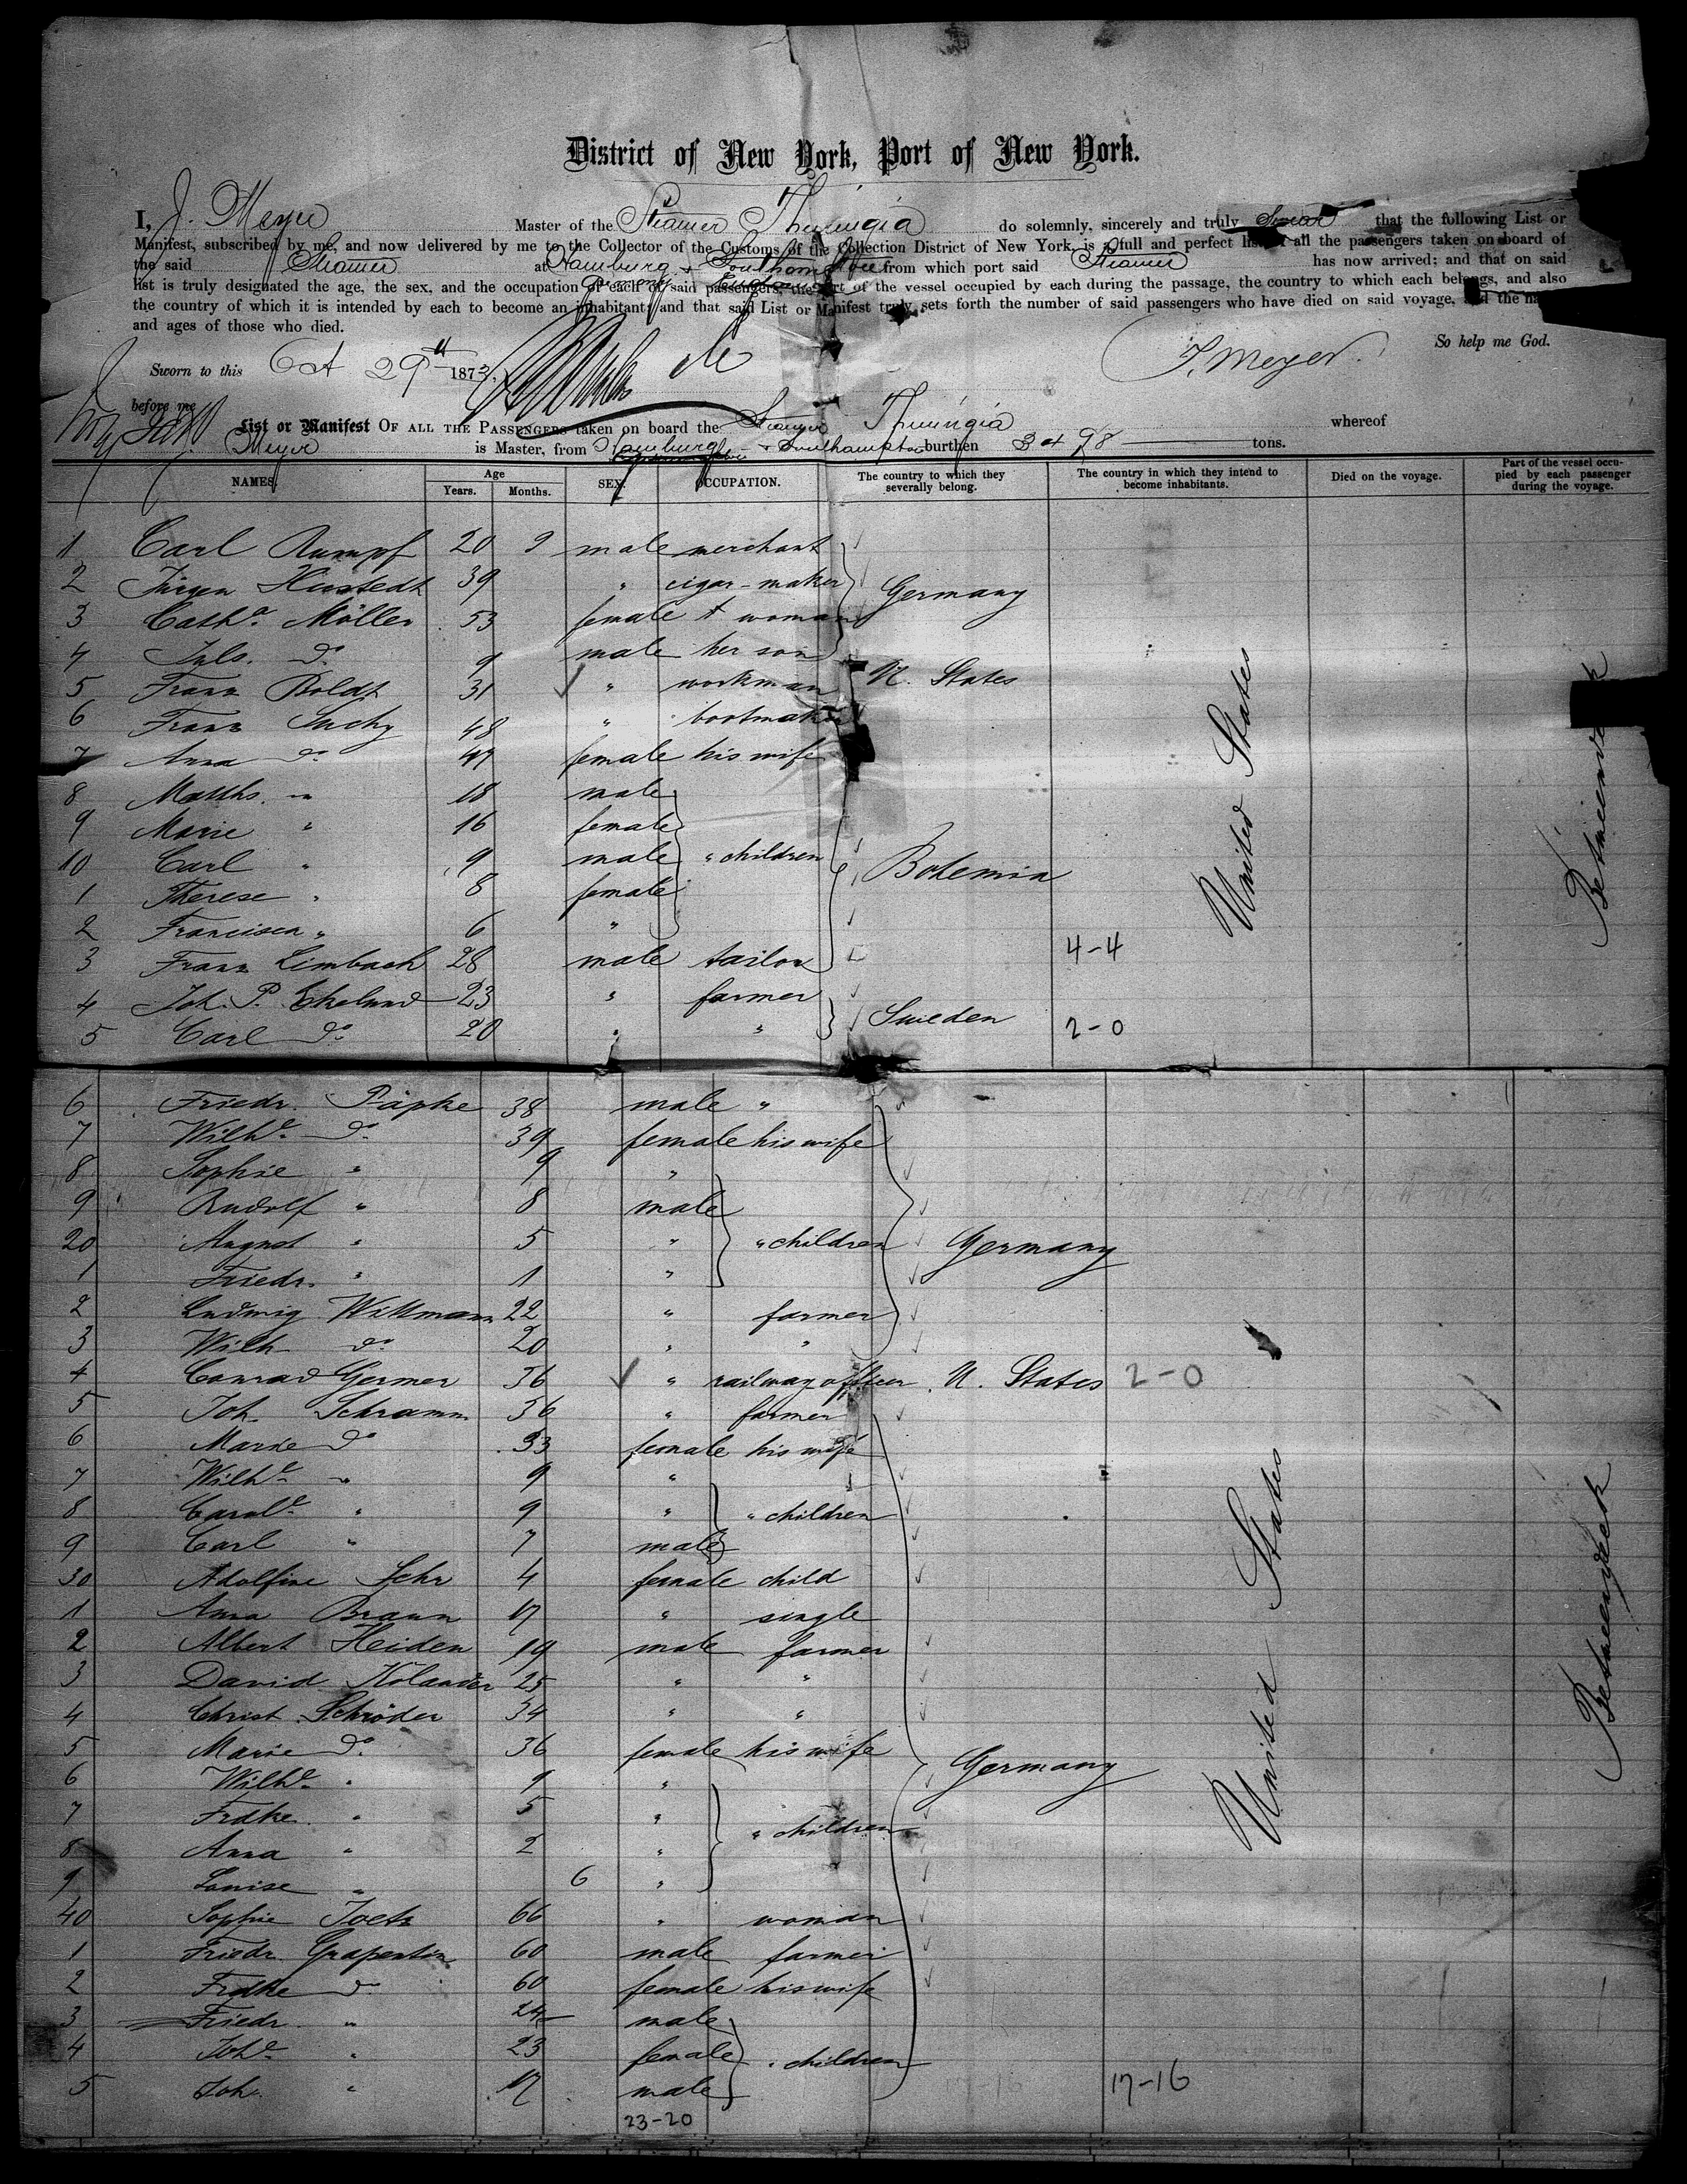 District of New York, Port of New York.
I, J. Meyer Master of the Steamer Thuringia do solemnly, sincerely and truly swear that the following List or
Manifest, subscribed by me, and now delivered by me to the Collector of the Customs of the Collection District of New York, is a full and perfect list of all the passengers taken on board of
the said Steamer at Hamburg & from which port said Steamer has now arrived; and that on said
list is truly designated the age, the sex, and the occupation of each of said passengers, the part of the vessel occupied by each during the passage, the country to which each belongs, and also
the country of which it is intended by each to become an inhabitant; and that said List or Manifest truly sets forth the number of said passengers who have died on said voyage, and the names
and ages of those who died.
So help me God.
Sworn to this Oct 29th 1873. J. Meyer.
before me
List or Manifest OF ALL THE PASSENGERS taken on board the Steamer Thuringia whereof
Meyer is Master, from Hamburg & Southampton burthen tons.
NAMES. Age Years. Months. SEX. OCCUPATION. The country to which they severally belong. The country in which they intend to become inhabitants. Died on the voyage. Part of the vessel occupied by each passenger during the voyage.
1 Carl Rumpf 20 9 male merchant
2 Jürgen Hustedt 39 " cigar-maker Germany
3 Catha. Möller 53 female woman
4 Juls. do 9 male her son
5 Franz Boldt 31 " workman U. States
6 Franz Suchy 48 " bootmaker
7 Anna do 47 female his wife
8 Matths. " 18 male
9 Marie " 16 female
10 Carl " 9 male " children Bohemia United States Betweendeck
1 Therese " 8 female
2 Francisca " 6 "
3 Franz Limbach 28 male tailor 4-4
4 Joh. P. Ekelund 23 " farmer
5 Carl do 20 " " Sweden 2-0
6 Friedr. Päpke 38 male "
7 Wilhe. do 39 female his wife
8 Sophie " 9 "
9 Rudolf " 8 male
20 August " 5 " " children Germany
1 Friedr. " 1 "
2 Ludwig Wittmann 22 " farmer
3 Wilh do 20 " "
4 Conrad Germer 36 " railway officer U. States 2-0
5 Joh. Schramm 36 " farmer
6 Marie do 33 female his wife
7 Wilhe. " 9 "
8 Carole. " 9 " " children
9 Carl " 7 male
30 Adolfine Sehr 4 female child
1 Anna Braun 17 " single
2 Albert Heiden 19 male farmer
3 David Kolander 25 " "
4 Christ. Schröder 34 " "
5 Marie do 36 female his wife Germany United States Betweendeck
6 Wilhe. " 9 "
7 Frdke. " 5 " " children
8 Anna " 2 "
9 Louise " 6 "
40 Sophie 66 " woman
1 Friedr. Grapentin 60 male farmer
2 Frdke do 60 female his wife
3 Friedr. " 24 male
4 Johe. " 23 female " children
5 Joh. " 17 male 17-16
23-20